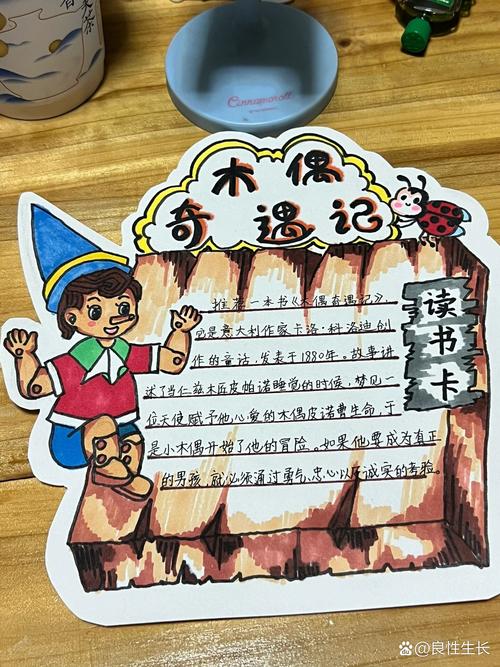 Cinnamoroll
木偶
奇遇记
读书卡
推荐一本书《木偶奇遇记》,
它是意大利作家卡洛·科洛迪创
作的童话,发表于1880年。故事讲
述了当仁慈木匠皮帕诺睡觉的时候,梦见一
位天使赋予他心爱的木偶皮诺曹生命,于
是小木偶开始了他的冒险。如果他要成为真正
的男孩,就必须通过勇气、忠心以及诚实的考验。
良性生长